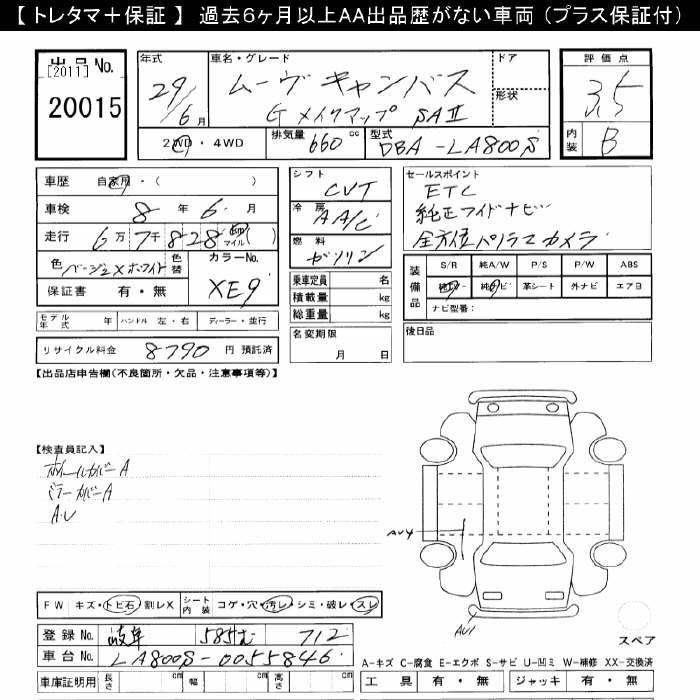 【 トレタマ＋保証 】 過去6ヶ月以上AA出品歴がない車両（プラス保証付）
出品 No.
[2011]
20015
年式
29/6月
車名・グレード
ムーヴ キャンバス
G メイクアップ SAⅡ
ドア
形状
評価点
3.5
内装 B
2WD・4WD
排気量 660 cc
型式 DBA-LA800S
車歴 自家用・( )
車検 8年 6月
走行 6万7千828 km マイル ( )
色 ベージュ×ホワイト
色替
カラーNo. XE9
保証書 有・無
モデル年式 年 ハンドル 左・右 ディーラー・並行
リサイクル料金 8790 円 預託済
シフト CVT
冷房 AA/C
燃料 ガソリン
乗車定員 名
積載量 kg
総重量 kg
名変期限
月 日
セールスポイント
ETC
純正ワイドナビ
全方位パノラマカメラ
装備品
S/R 純A/W P/S P/W ABS
純TV 純ナビ 革シート 外ナビ エアB
ナビ型番：
後日品
【出品店申告欄(不良箇所・欠品・注意事項等)】
【検査員記入】
ホイールカバーA
ミラーカバーA
A.U
AU4
AU1
スペア
FW キズ・トビ石・割レX シート内装 コゲ・穴・汚レ・シミ・破レ・スレ
登録 No. 岐阜 585む 712
車台 No. LA800S-0055846
車庫証明用 長さ cm 幅 cm 高さ cm
A-キズ C-腐食 E-エクボ S-サビ U-凹ミ W-補修 XX-交換済
工具 有・無 ジャッキ 有・無